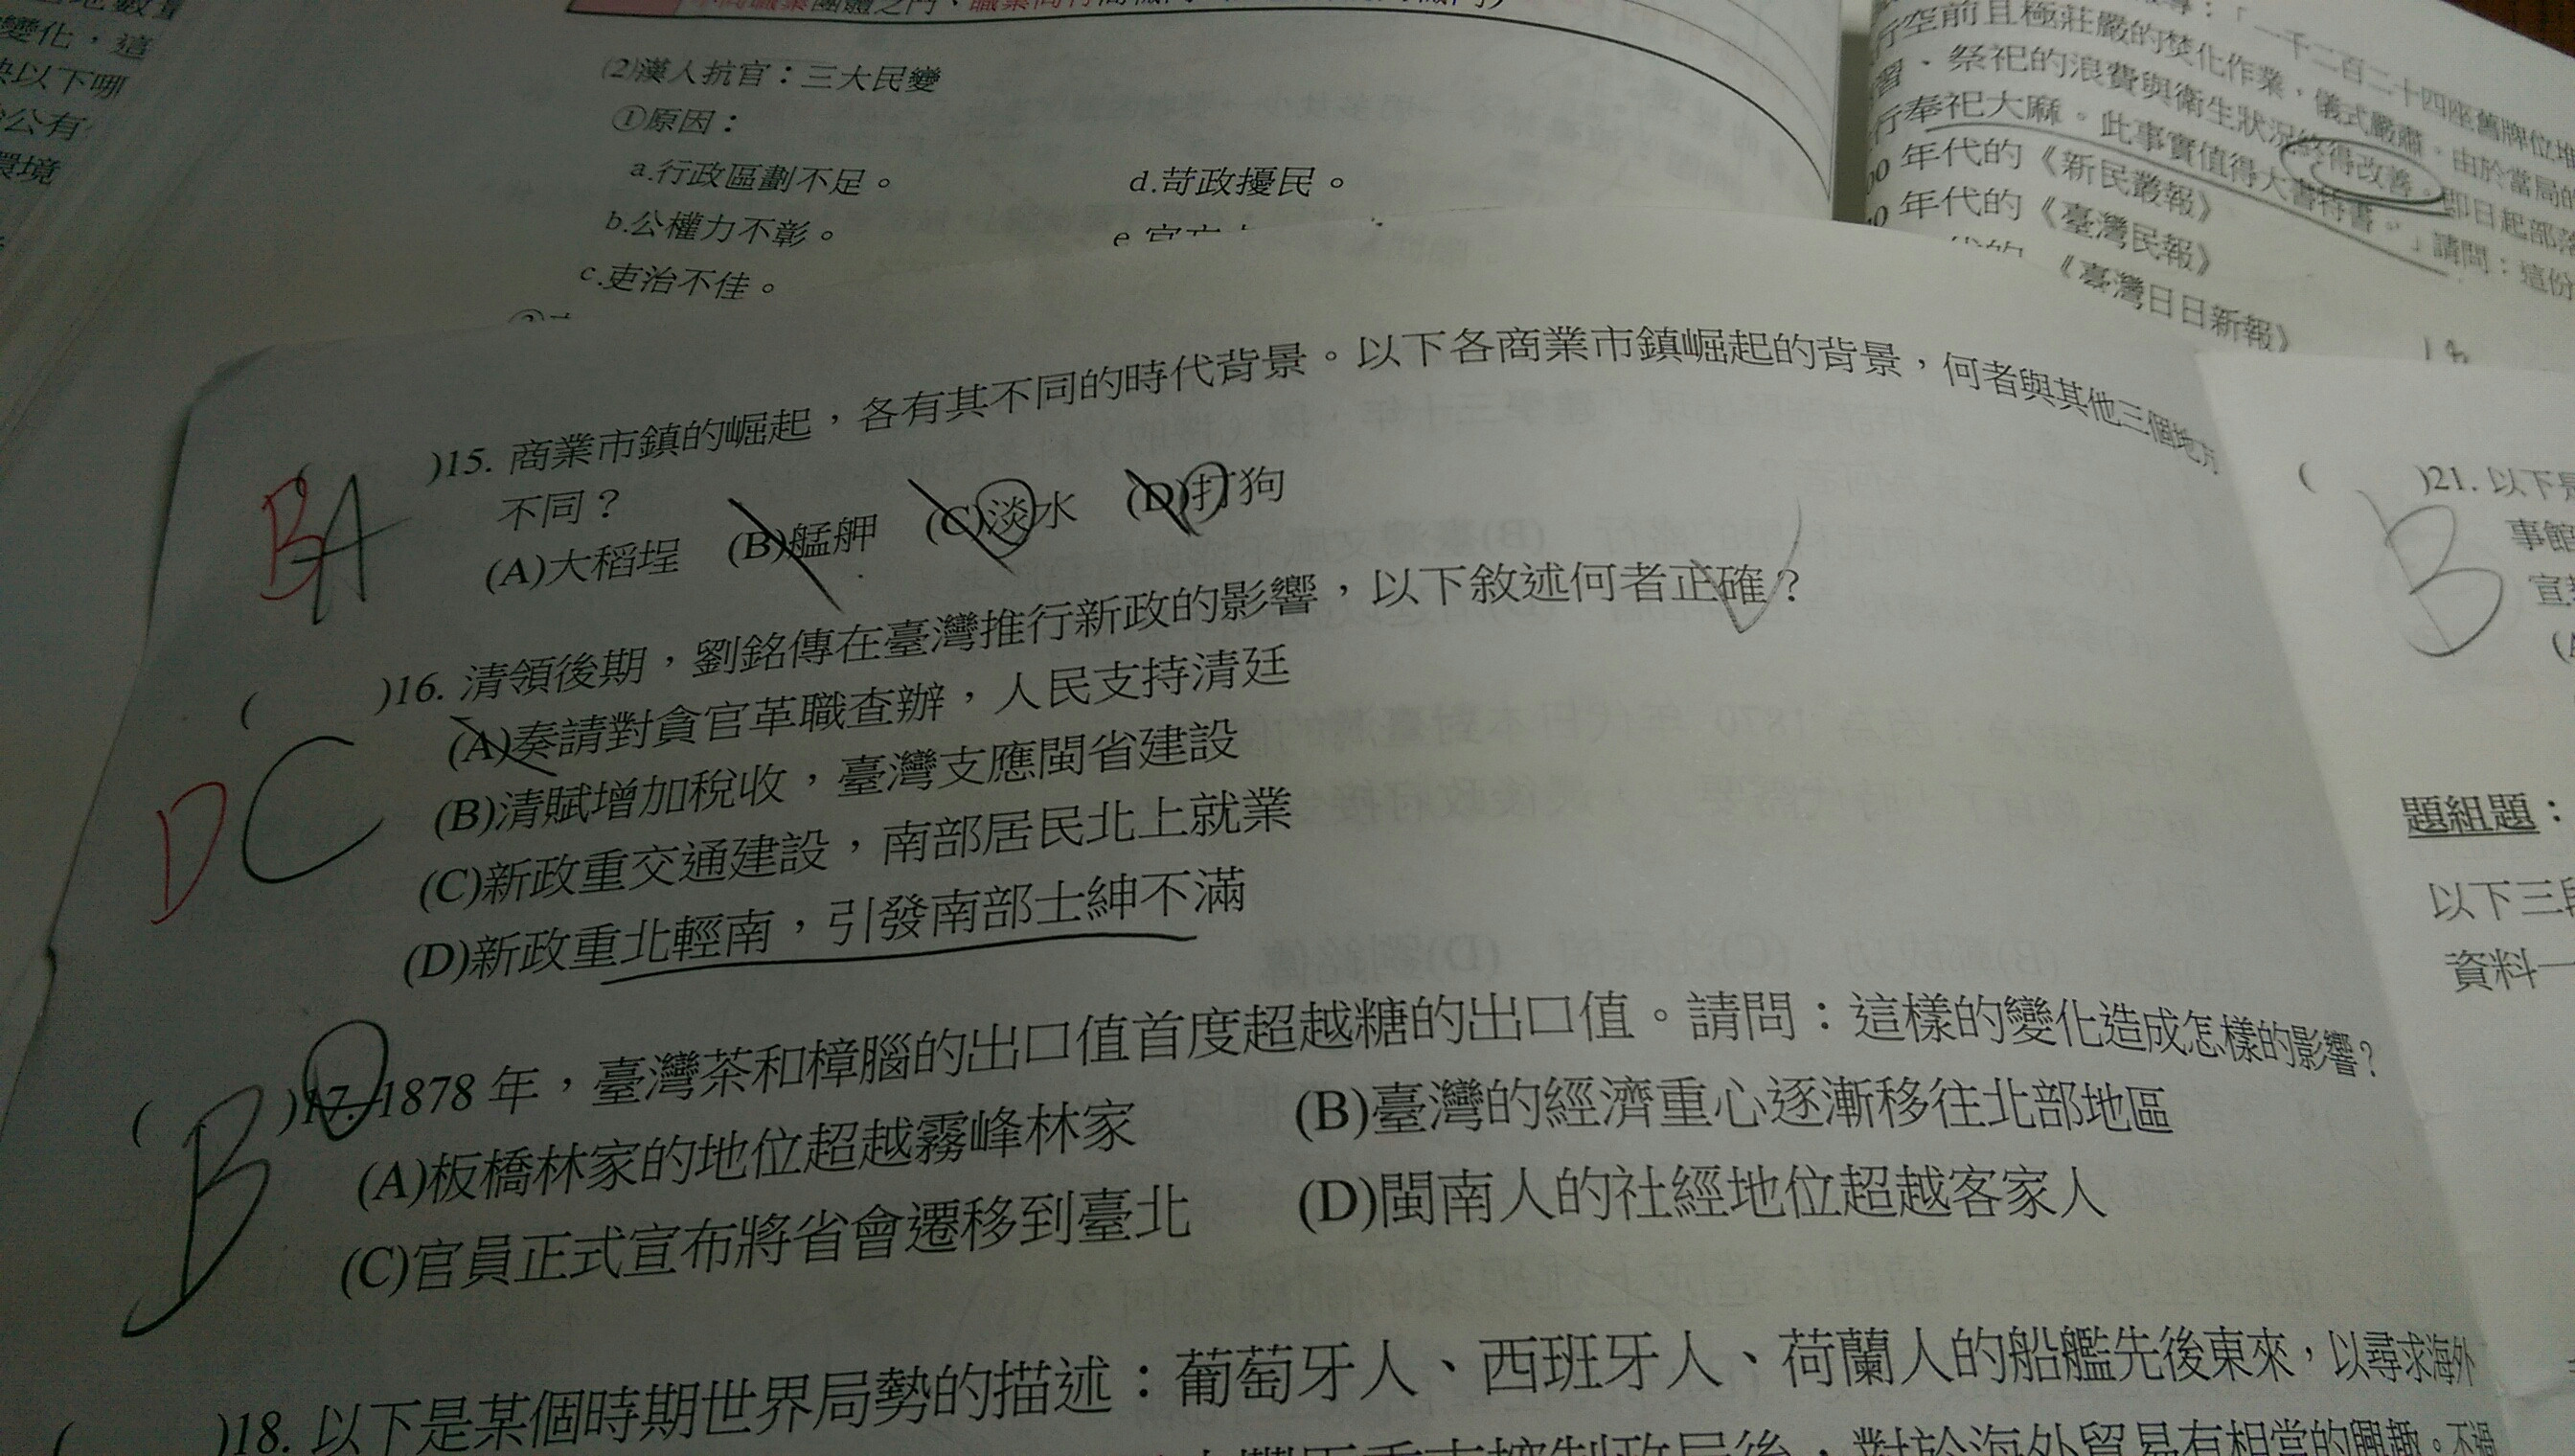 變化，這
以下哪
公有
環境
(2)漢人抗官：三大民變
①原因：
a.行政區劃不足。
d.苛政擾民。
b.公權力不彰。
c.吏治不佳。
：「一千二百二十四座舊牌位堆
行空前且極莊嚴的焚化作業，儀式嚴肅。由於當局的
習、祭祀的浪費與衛生狀況終得改善。即日起部落
行奉祀大麻。此事實值得大書特書。」請問：這份
年代的《新民叢報》
年代的《臺灣民報》
《臺灣日日新報》
BA
)15. 商業市鎮的崛起，各有其不同的時代背景。以下各商業市鎮崛起的背景，何者與其他三個地方
不同？
(A)大稻埕 (B)艋舺 (C)淡水 (D)打狗
DC
( )16. 清領後期，劉銘傳在臺灣推行新政的影響，以下敘述何者正確？
(A)奏請對貪官革職查辦，人民支持清廷
(B)清賦增加稅收，臺灣支應閩省建設
(C)新政重交通建設，南部居民北上就業
(D)新政重北輕南，引發南部士紳不滿
B
( )17. 1878 年，臺灣茶和樟腦的出口值首度超越糖的出口值。請問：這樣的變化造成怎樣的影響？
(A)板橋林家的地位超越霧峰林家 (B)臺灣的經濟重心逐漸移往北部地區
(C)官員正式宣布將省會遷移到臺北 (D)閩南人的社經地位超越客家人
( )18. 以下是某個時期世界局勢的描述：葡萄牙人、西班牙人、荷蘭人的船艦先後東來，以尋求海外
後，對於海外貿易有相當的興趣。不過
B
( )21. 以下是
事館
題組題：
以下三段
資料一